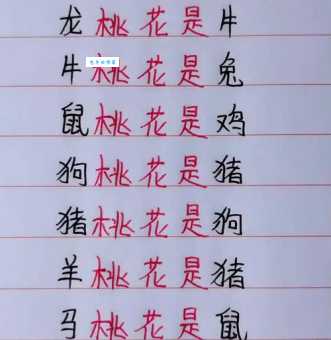 龙桃花是牛
牛桃花是兔
鼠桃花是鸡
狗桃花是猪
猪桃花是狗
羊桃花是猪
马桃花是鼠